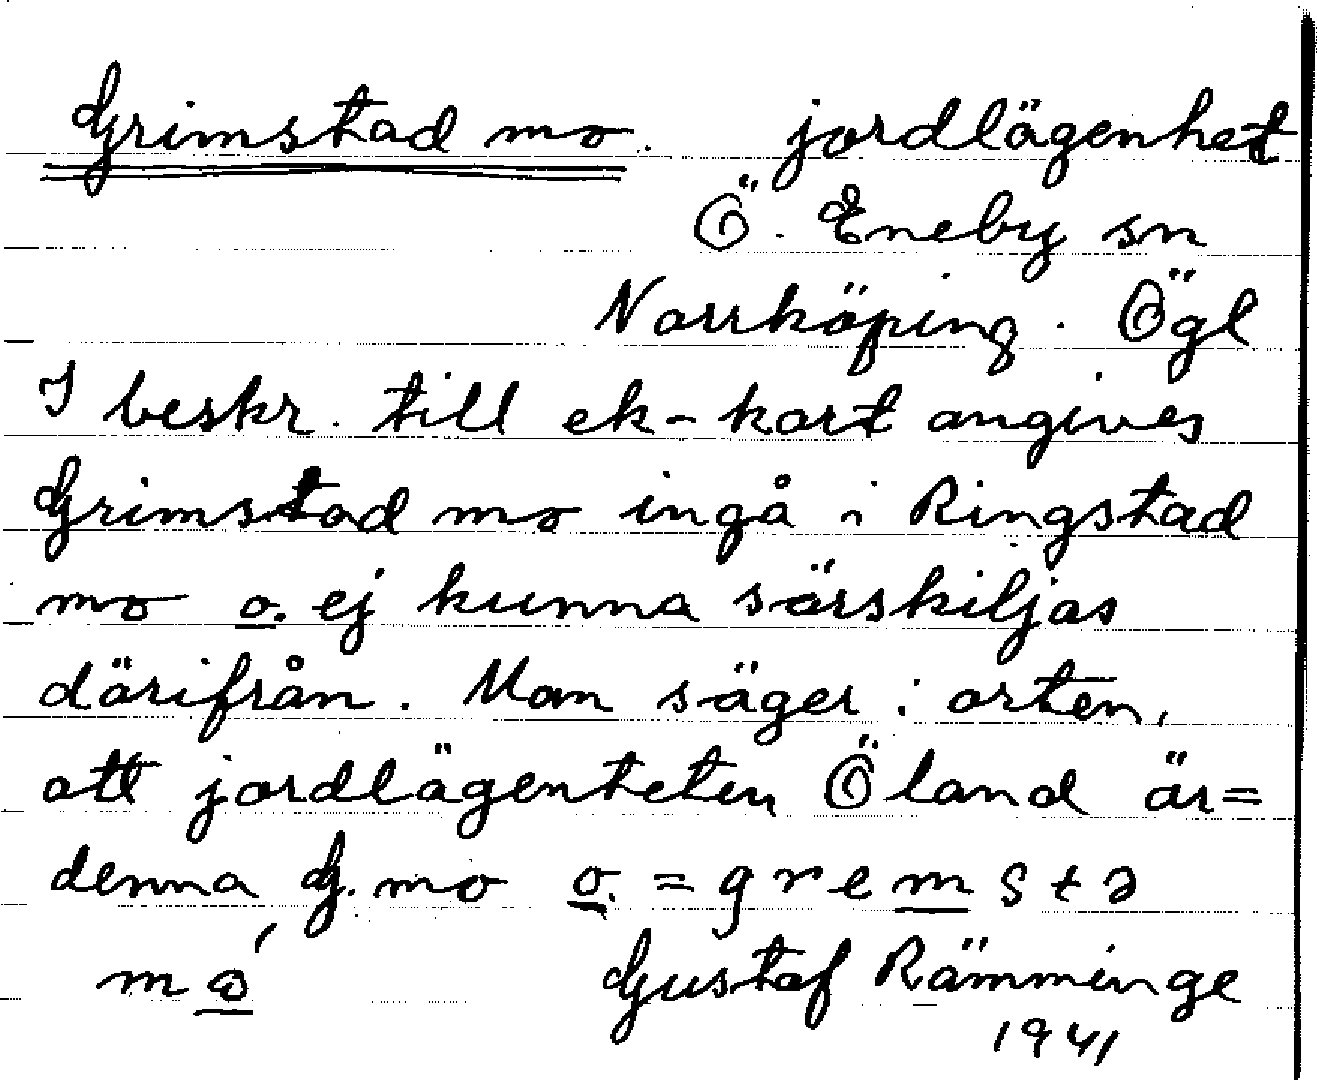 Grimstad mo. jordlägenhet
Ö. Eneby sn
Norrköping. Ögl
I beskr. till ek-kart angives
Grimstad mo ingå i Ringstad
mo o. ej kunna särskiljas
därifrån. Man säger i orten,
att jordlägenteten Öland är=
denna G. mo o. = gremstə
mɷ́ Gustaf Rämminge
1941